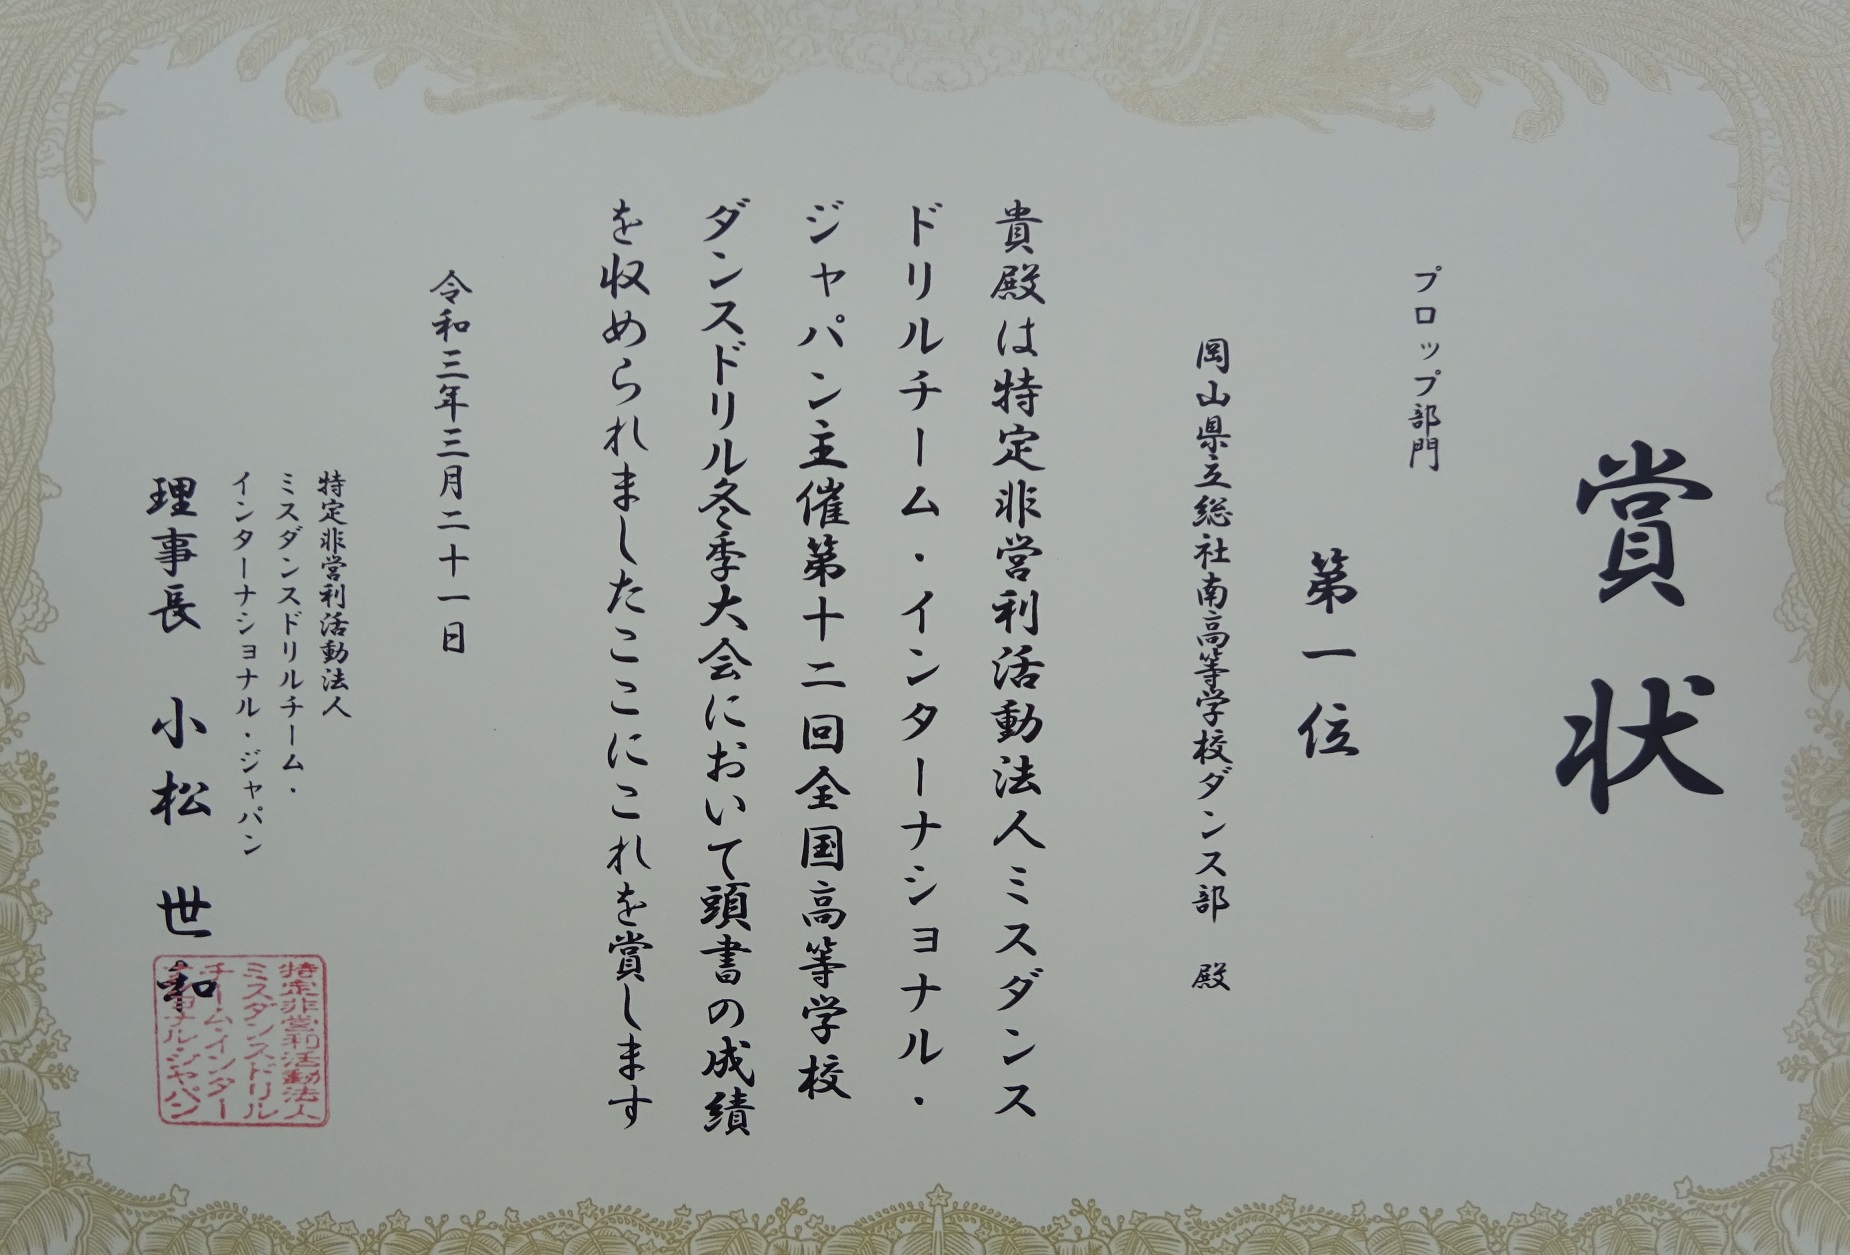 賞状
プロップ部門
第一位
岡山県立総社南高等学校ダンス部 殿
貴殿は特定非営利活動法人ミスダンス
ドリルチーム・インターナショナル・
ジャパン主催第十二回全国高等学校
ダンスドリル冬季大会において頭書の成績
を収められましたここにこれを賞します
令和三年三月二十一日
特定非営利活動法人
ミスダンスドリルチーム・
インターナショナル・ジャパン
理事長 小松世和
特定非営利活動法人
ミスダンスドリル
チーム・インター
ナショナル・ジャパン